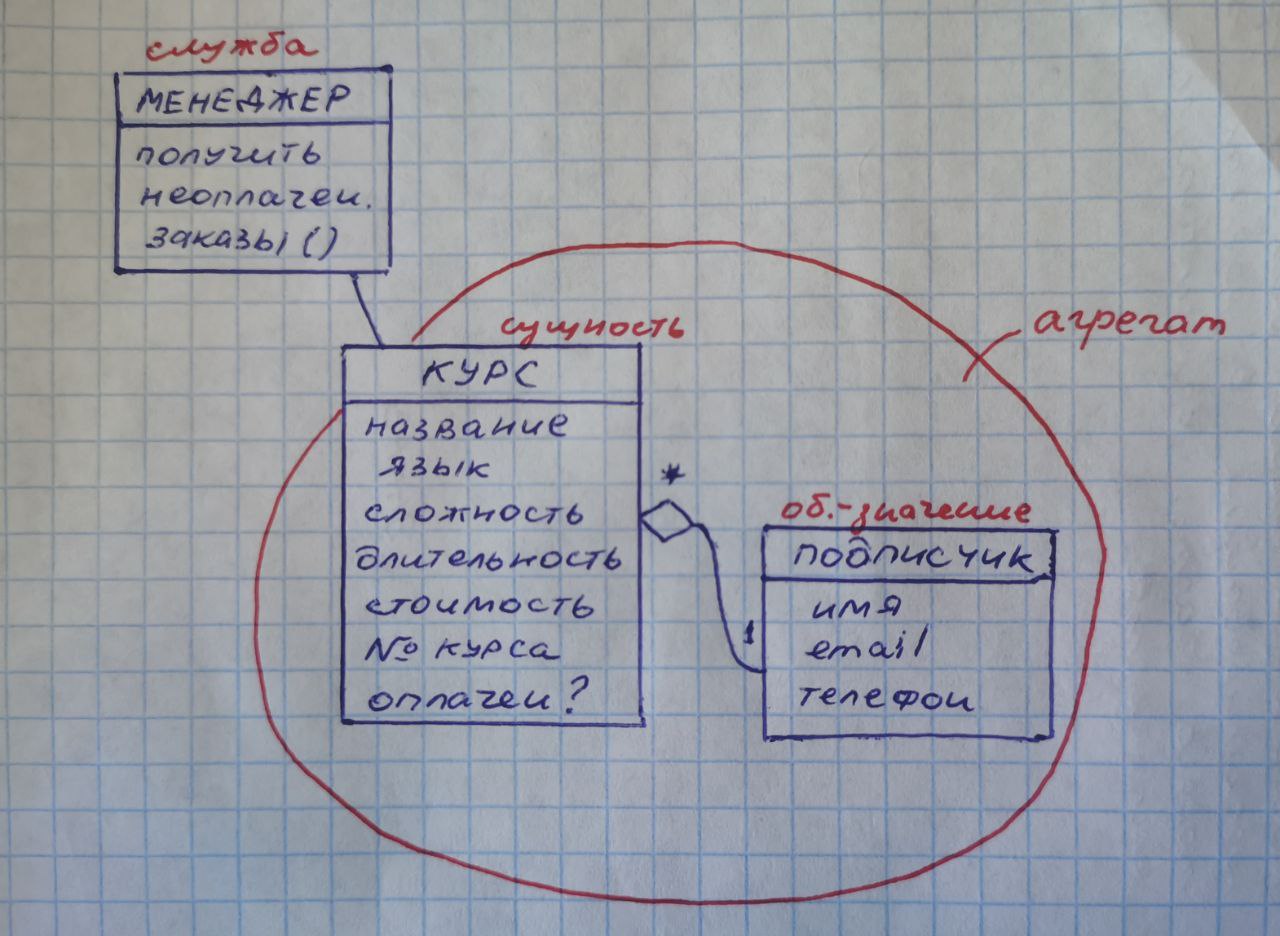 служба
МЕНЕДЖЕР
получить
неоплачен.
заказы ()
сущность
агрегат
КУРС
название
язык
сложность
длительность
стоимость
№ курса
оплачен?
*
1
об.-значение
подписчик
имя
email
телефон